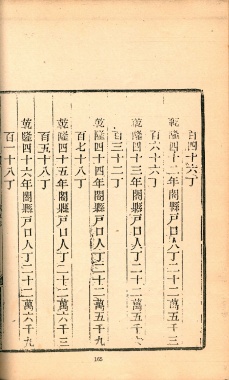 百四十六丁
乾隆四十二年閤縣戸口人丁二十二萬五千三
百六十六丁
乾隆四十三年閤縣戸口人丁二十二萬五千六
百三十二丁
乾隆四十四年閤縣戸口人丁二十二萬五千九
百七十八丁
乾隆四十五年閤縣戸口人丁二十二萬六千三
百五十八丁
乾隆四十六年閤縣戸口人丁二十二萬六千九
百一十八丁
165